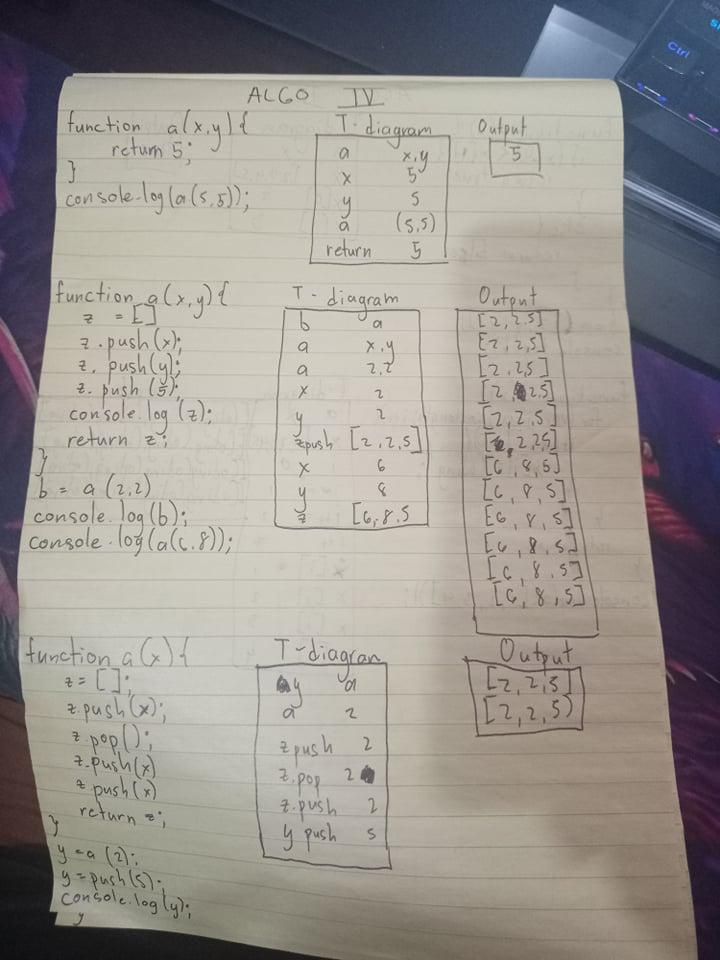 ALGO IV
function a(x,y){
return 5;
}
console.log(a(5,5));
T-diagram
a x,y
x 5
y 5
a (5,5)
return 5
Output
5
function a(x,y){
z = []
z.push(x);
z.push(y);
z.push(5);
console.log(z);
return z;
}
b = a (2,2)
console.log(b);
console.log(a(6.8));
T-diagram
b a
a x,y
a 2,2
x 2
y 2
zpush [2,2,5]
x 6
y 8
z [6,8,5
Output
[2,2,5]
[2,2,5]
[2,2,5]
[2,2,5]
[2,2,5]
2,2,5]
[6,8,5]
[6,8,5]
[6,8,5]
[6,8,5]
[6,8,5]
[6,8,5]
function a(x){
z= [];
z.push(x);
z.pop();
z.push(x)
z push(x)
return z;
}
y=a(2);
y=push(5);
console.log(y);
y
T-diagram
y a
a 2
z push 2
z.pop 2
z.push 2
y push 5
Output
[2,2,5]
[2,2,5)
Ctrl